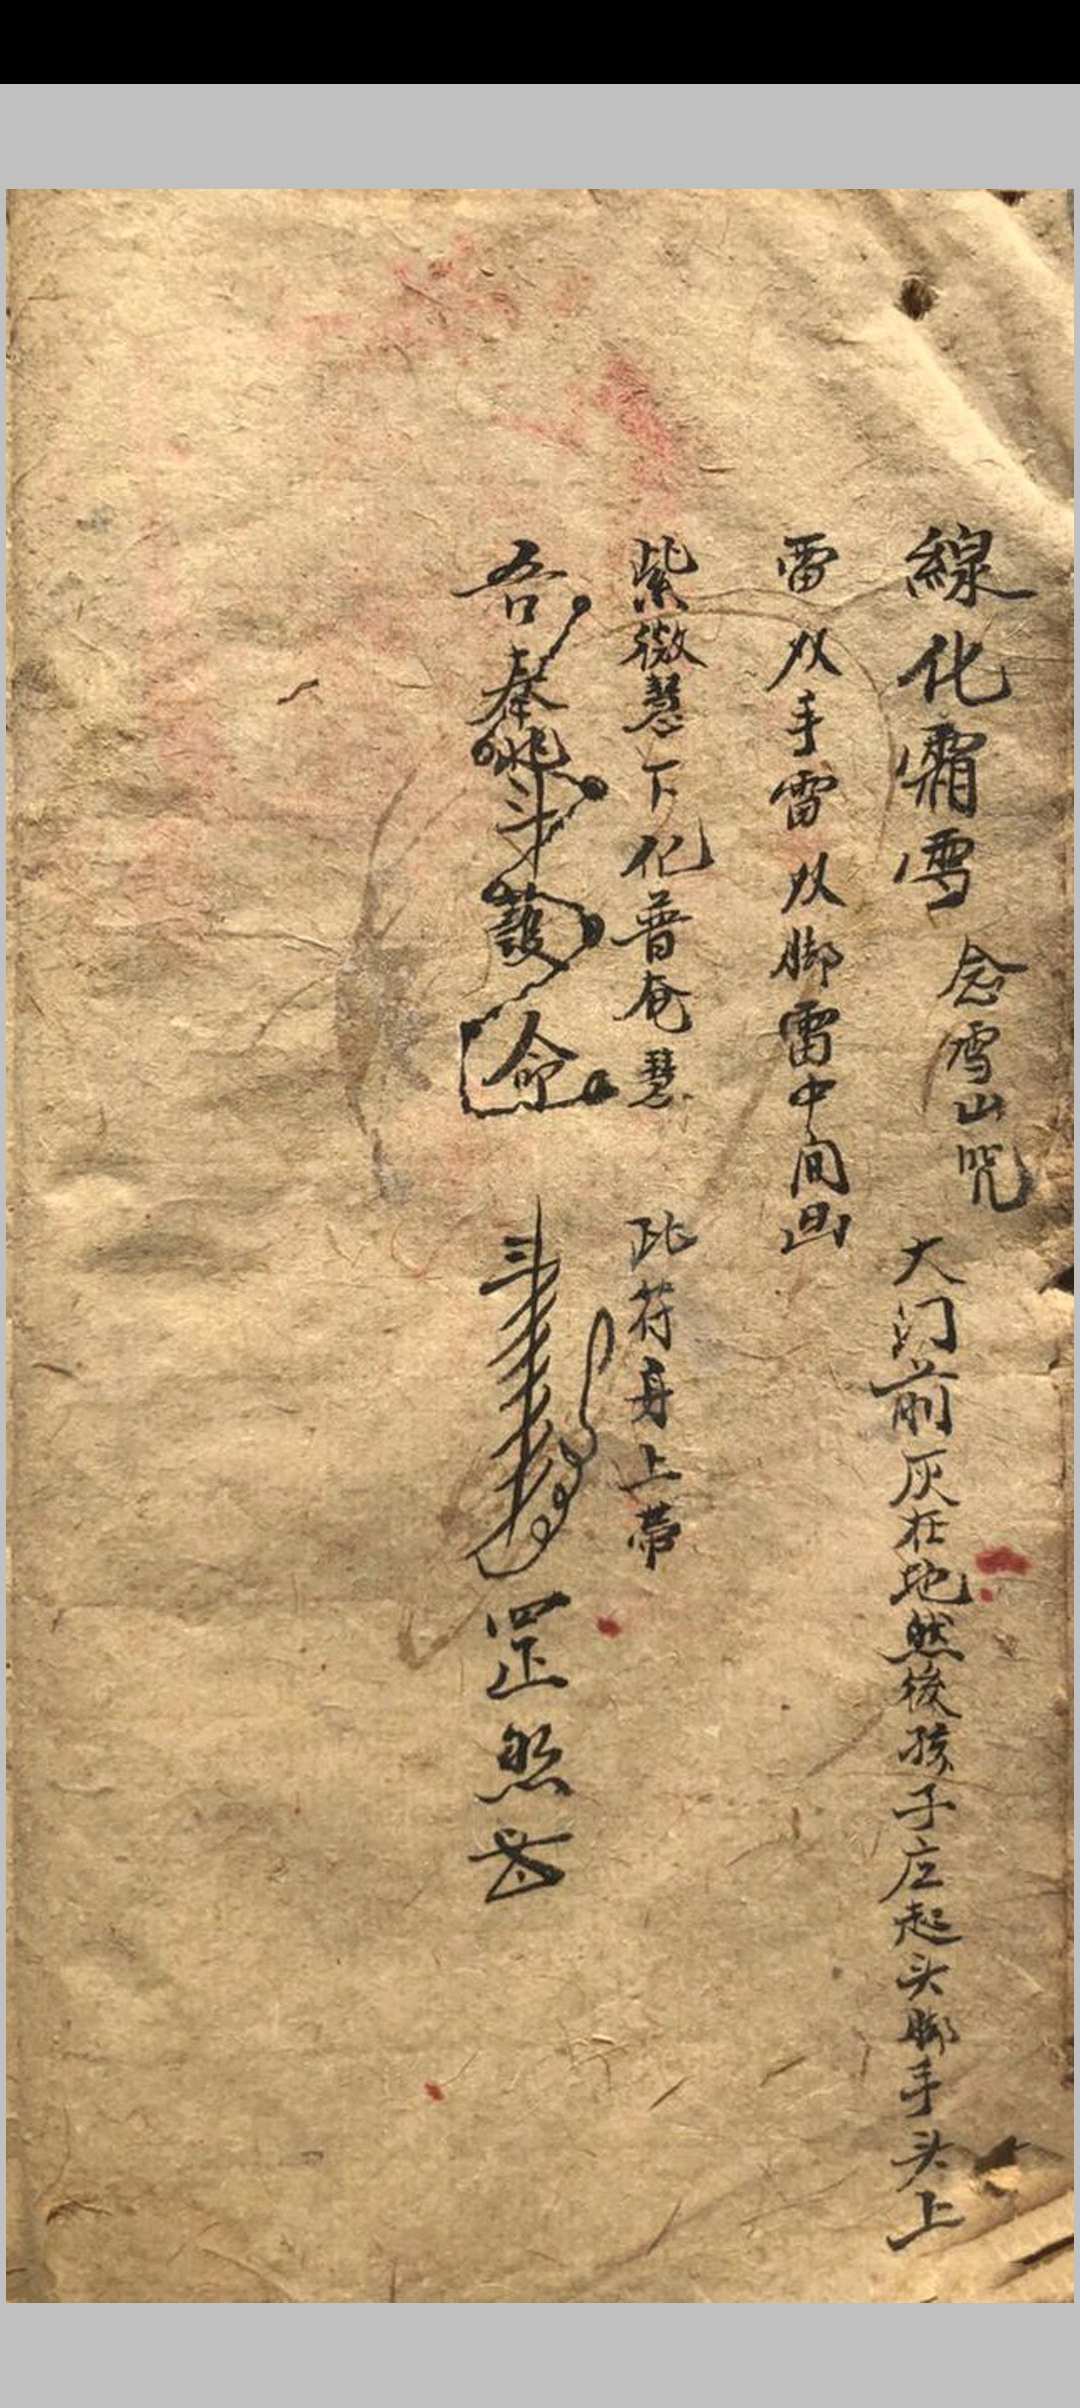 線化霜雪 念雪山咒 大门前灰在地然後孩子庄起头脚手头上
雷双手雷双脚雷中间画
紫微慧下化普奄慧 此符身上带
吾奉斗護命 罡煞